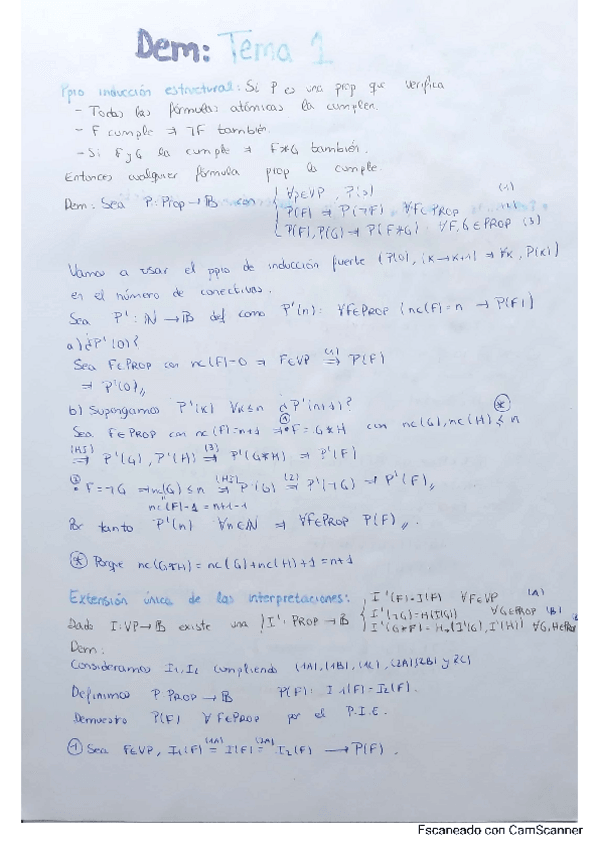 Dem: Tema 1
Ppio inducción estructural: Si P es una prop que verifica
- Todas las fórmulas atómicas la cumplen.
- F cumple ⇒ ¬F también.
- Si F y G la cumple ⇒ F*G también.
Entonces cualquier fórmula prop la cumple.
Dem: Sea P: Prop → B con { ∀p∈VP, P(p) (1)
P(F) ⇒ P(¬F) ∀F∈PROP (2)
P(F), P(G) ⇒ P(F*G) ∀F,G∈PROP (3)
Vamos a usar el ppio de inducción fuerte (P(0), (K→K+1) ⇒ ∀K, P(K))
en el número de conectivas.
Sea P': N → B def como P'(n): ∀F∈PROP (nc(F)=n → P(F))
a) ¿P'(0)?
Sea F∈PROP con nc(F)=0 ⇒ F∈VP (1)⇒ P(F)
⇒ P'(0)
b) Supongamos P'(K) ∀K≤n ¿P'(n+1)?
Sea F∈PROP con nc(F)=n+1 ⇒ ① • F=G*H con nc(G), nc(H) ≤ n ⊛
(HS)⇒ P'(G), P'(H) (3)⇒ P'(G*H) ⇒ P'(F)
② • F=¬G ⇒ nc(G) ≤ n (HS)⇒ P'(G) (2)⇒ P'(¬G) ⇒ P'(F)
nc(F)-1 = n+1-1
Por tanto P'(n) ∀n∈N ⇒ ∀F∈PROP P(F)
⊛ Porque nc(G*H) = nc(G)+nc(H)+1 = n+1
Extensión única de las interpretaciones: { I'(F)=I(F) ∀F∈VP (A)
Dado I: VP→B existe una I': PROP → B { I'(¬G)=H(I(G)) ∀G∈PROP (B)
I'(G*F)=H*(I'(G), I'(H)) ∀G,H∈PROP
Dem:
Consideramos I1, I2 cumpliendo (1A), (1B), (1C), (2A)(2B) y 2C)
Definimos P: PROP → B P(F): I1(F)=I2(F).
Demuestro P(F) ∀F∈PROP por el P.I.E.
① Sea F∈VP, I1(F) (1A)= I(F) (2A)= I2(F) → P(F).
Escaneado con CamScanner